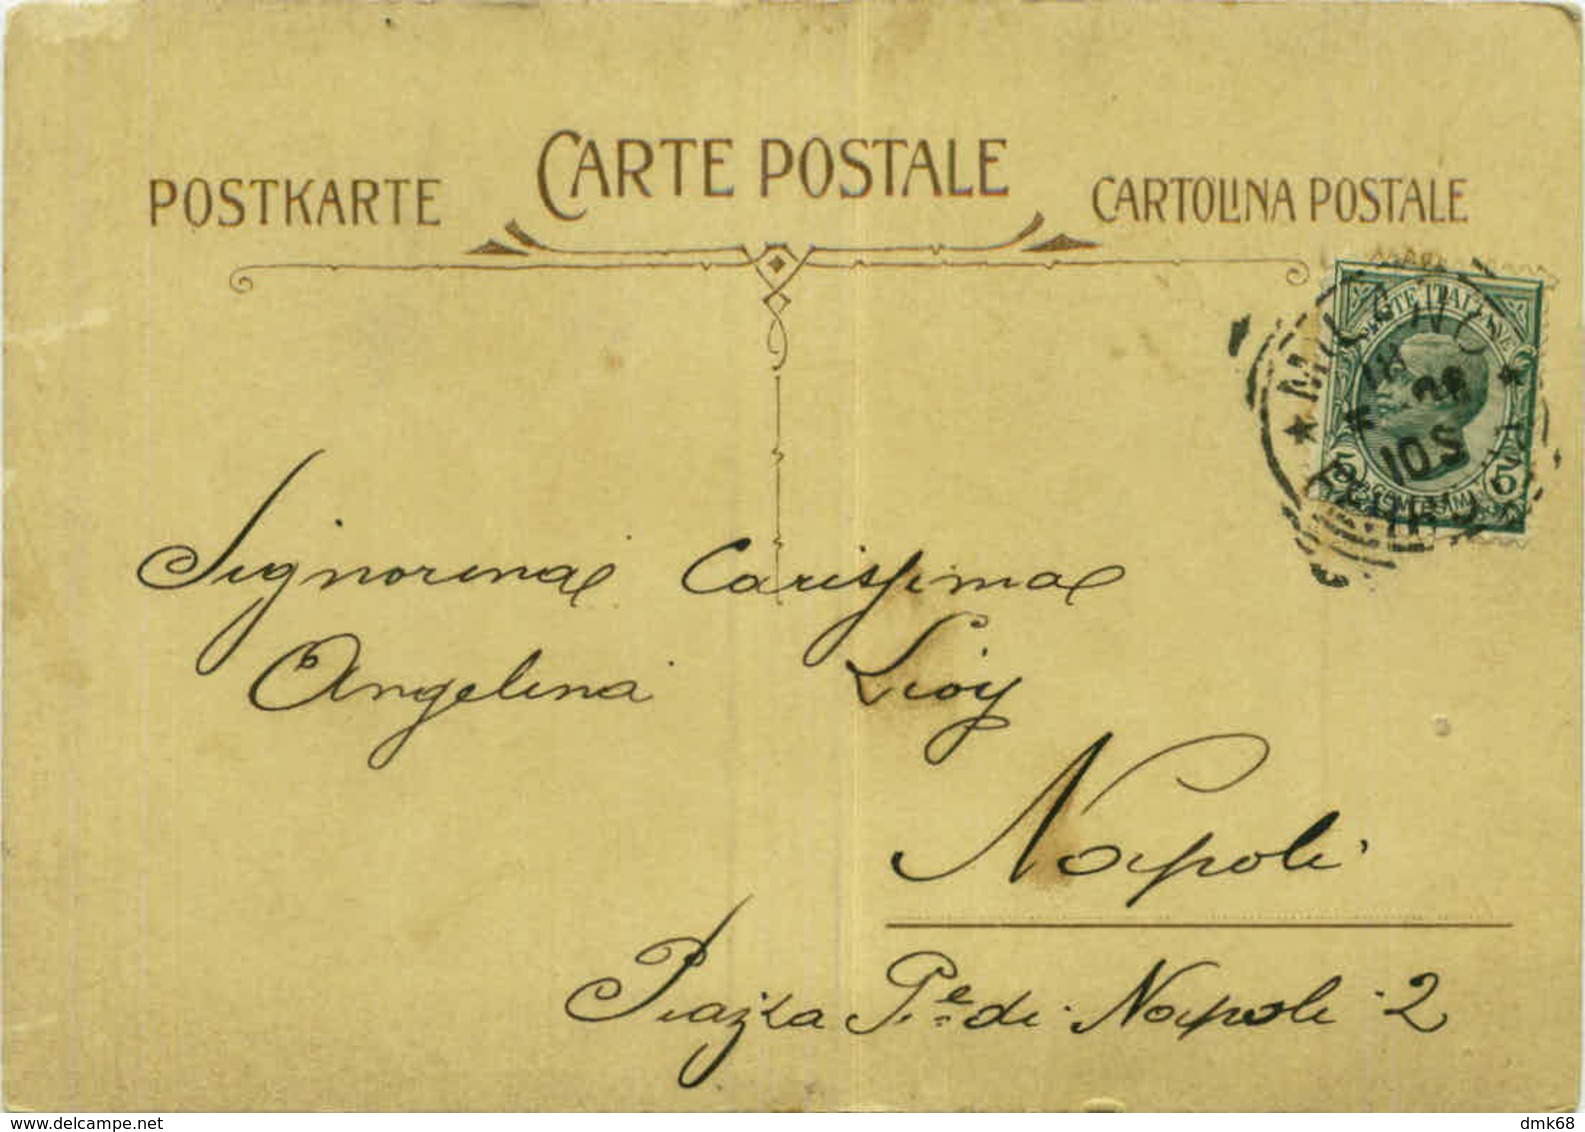 POSTKARTE CARTE POSTALE CARTOLINA POSTALE
MILANO
10S
5 5
Signorina Carissima
Angelina Lioy
Napoli
Piazza P.e di Napoli 2
www.delcampe.net
dmk68